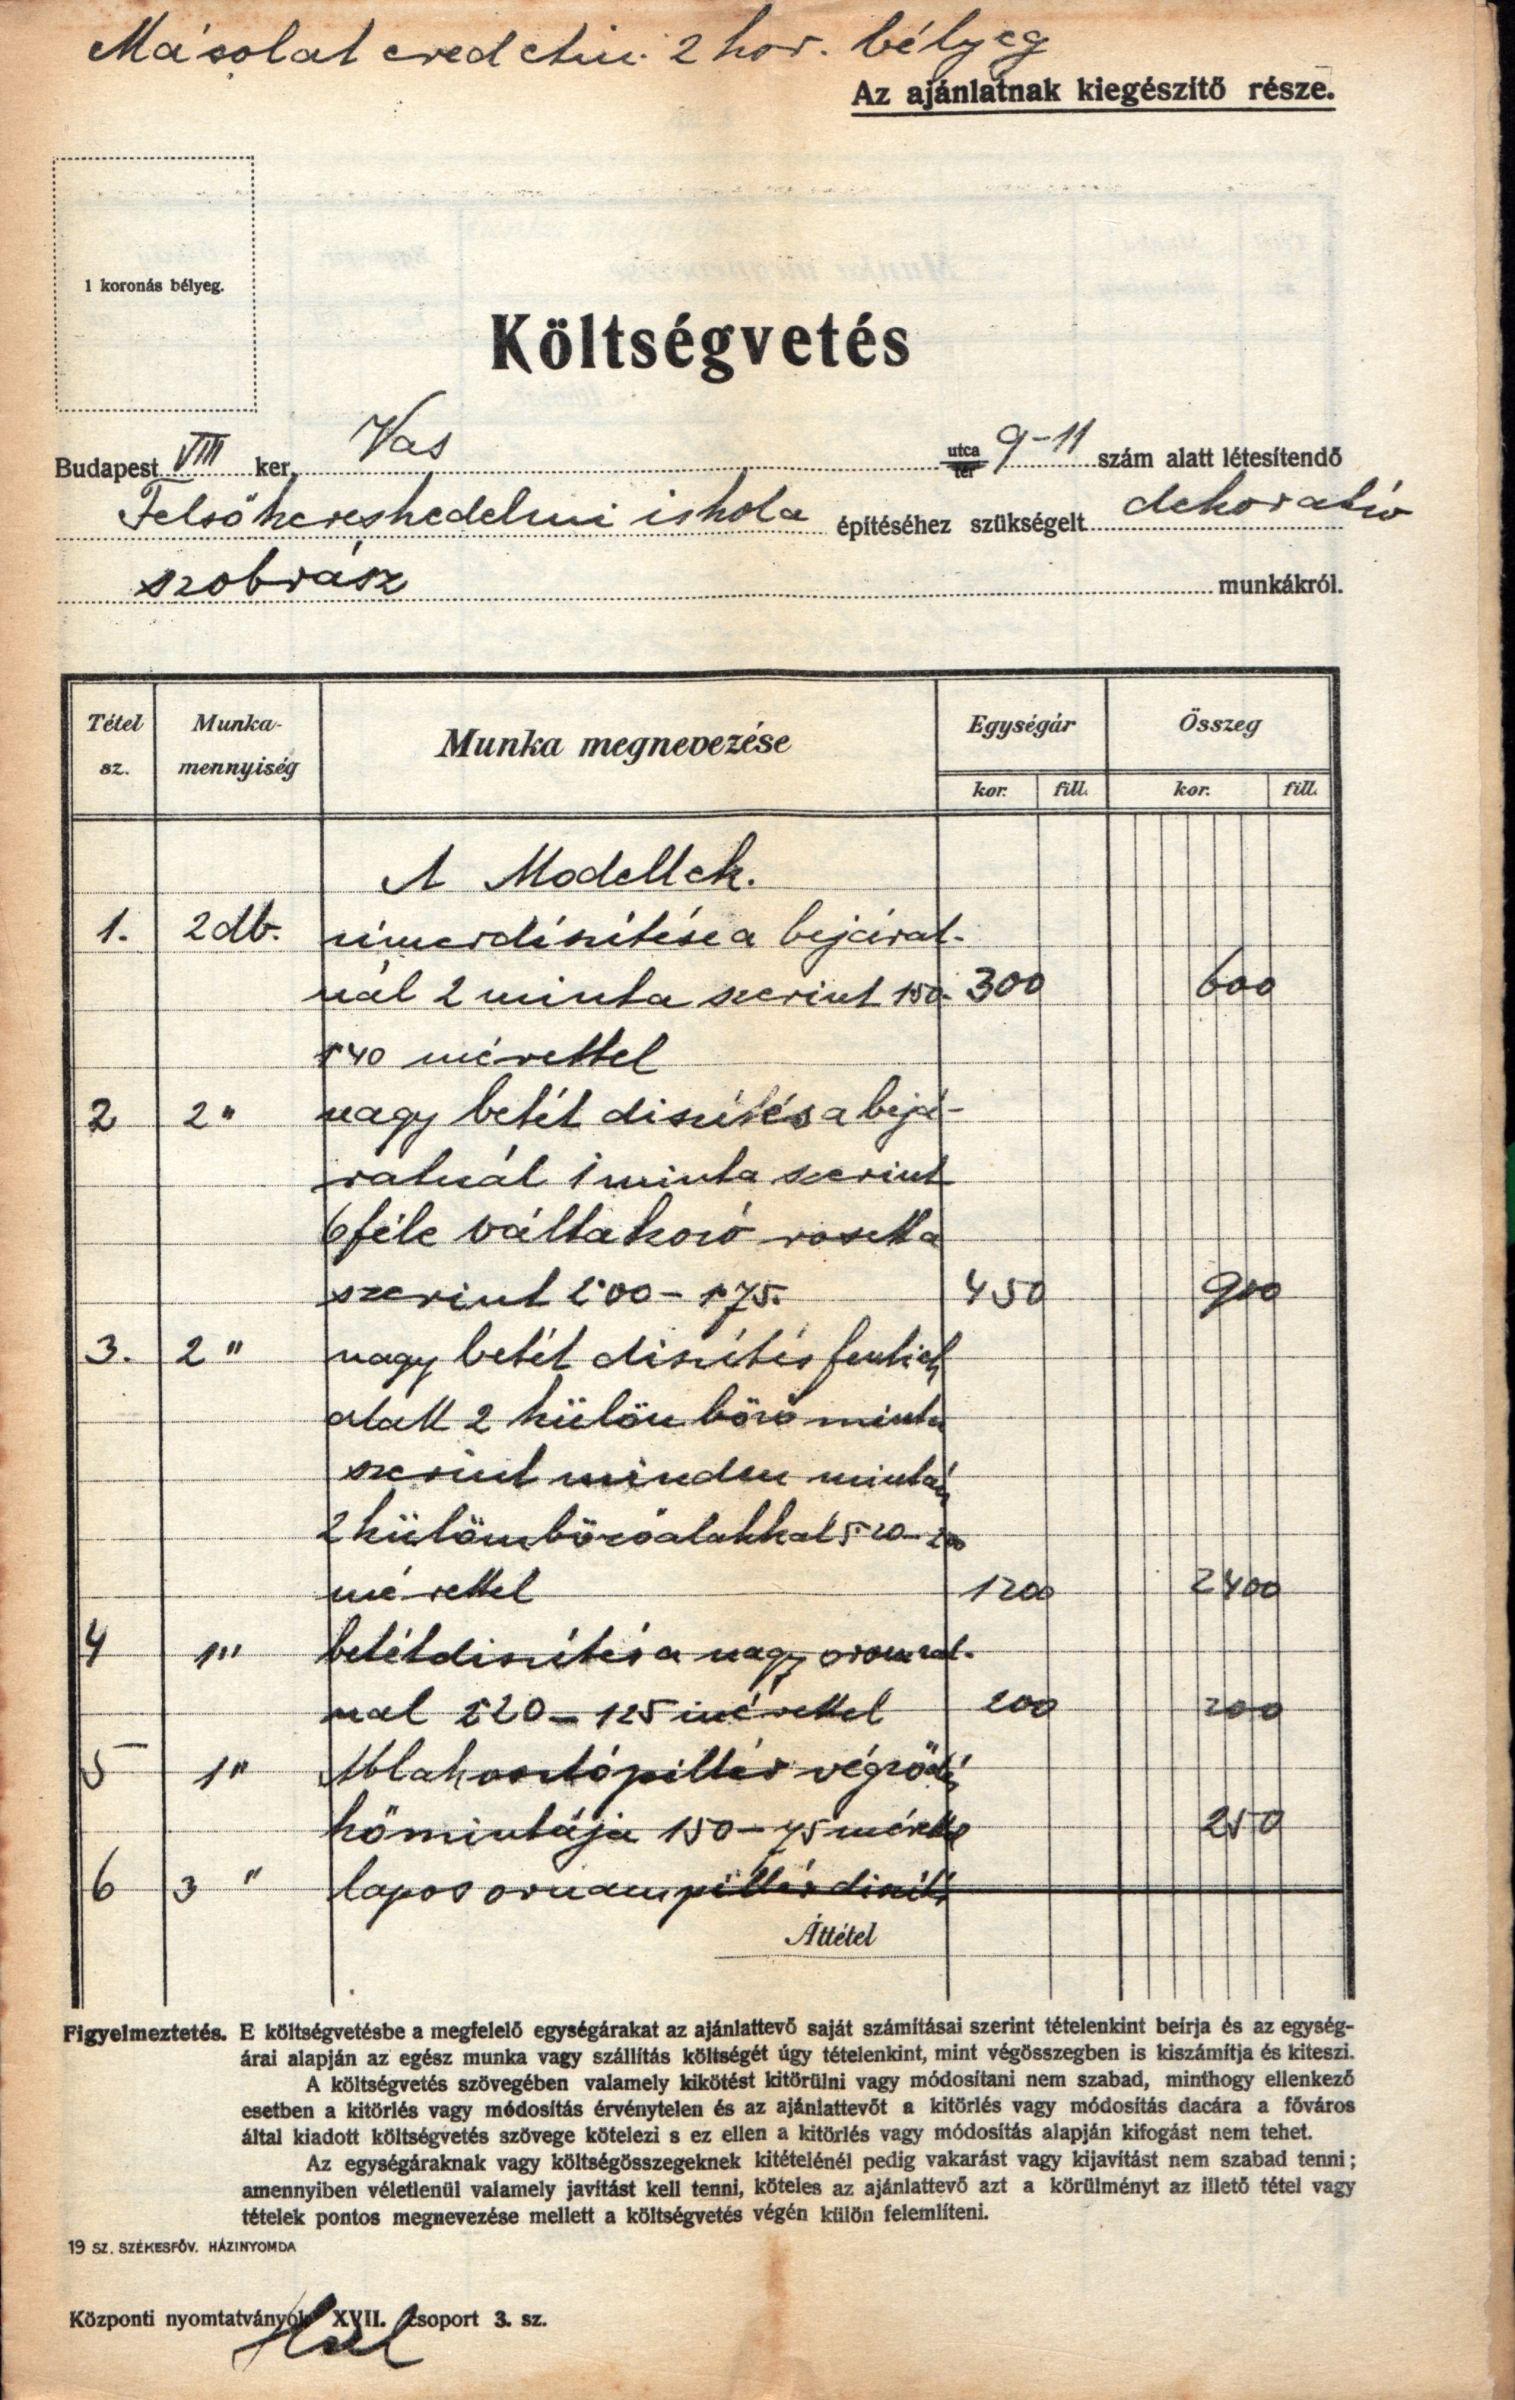 Másolat eredetin 2 kor. bélyeg
Az ajánlatnak kiegészítő része.
1 koronás bélyeg.
Költségvetés
Budapest VIII ker. Vas utca tér 9-11 szám alatt létesítendő
Felsőkereskedelmi iskola építéséhez szükségelt dekoratív
szobrász munkákról.
Tétel sz. Munka-mennyiség Munka megnevezése Egységár Összeg
kor. fill. kor. fill.
A Modellek.
1. 2 db. címerdíszítése a bejárat-
nál 2 minta szerint 150- 300 600
140 mérettel
2 2 " nagy betét díszítés a bejá-
ratnál 1 minta szerint
6 féle váltakozó rosetta
szerint 2·00 - 1·75. 450 900
3. 2 " nagy betét díszítés fentiek
alatt 2 külön böző minta
szerint minden mintán
2 külömböző alakkal 5·20-200
mérettel 1200 2400
4 1 " betétdíszítés a nagy oromzat-
nal 220 - 125 mérettel 200 200
5 1 " Ablakosztópillér végződés
kőmintája 150 - 75 mérettel 250
6 3 " lapos ornam pillér díszítés
Áttétel
Figyelmeztetés. E költségvetésbe a megfelelő egységárakat az ajánlattevő saját számításai szerint tételenkint beírja és az egység-
árai alapján az egész munka vagy szállítás költségét úgy tételenkint, mint végösszegben is kiszámítja és kiteszi.
A költségvetés szövegében valamely kikötést kitörülni vagy módosítani nem szabad, minthogy ellenkező
esetben a kitörlés vagy módosítás érvénytelen és az ajánlattevőt a kitörlés vagy módosítás dacára a főváros
által kiadott költségvetés szövege kötelezi s ez ellen a kitörlés vagy módosítás alapján kifogást nem tehet.
Az egységáraknak vagy költségösszegeknek kitételénél pedig vakarást vagy kijavítást nem szabad tenni;
amennyiben véletlenül valamely javítást kell tenni, köteles az ajánlattevő azt a körülményt az illető tétel vagy
tételek pontos megnevezése mellett a költségvetés végén külön felemlíteni.
19 SZ. SZÉKESFŐV. HÁZINYOMDA
Központi nyomtatványok XVII. csoport 3. sz.